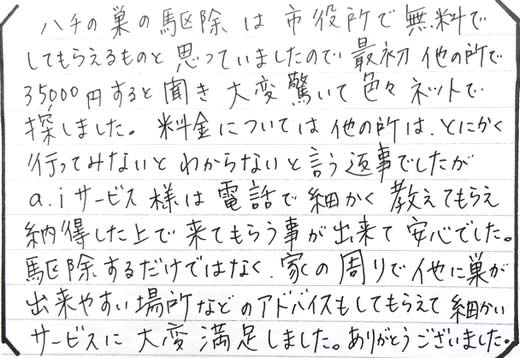 ハチの巣の駆除は市役所で無料で
してもらえるものと思っていましたので最初他の所で
35000円すると聞き大変驚いて色々ネットで
探しました。料金については他の所は、とにかく
行ってみないとわからないと言う返事でしたが
a.iサービス様は電話で細かく教えてもらえ
納得した上で来てもらう事が出来て安心でした。
駆除するだけではなく、家の周りで他に巣が
出来やすい場所などのアドバイスもしてもらえて細かい
サービスに大変満足しました。ありがとうございました。